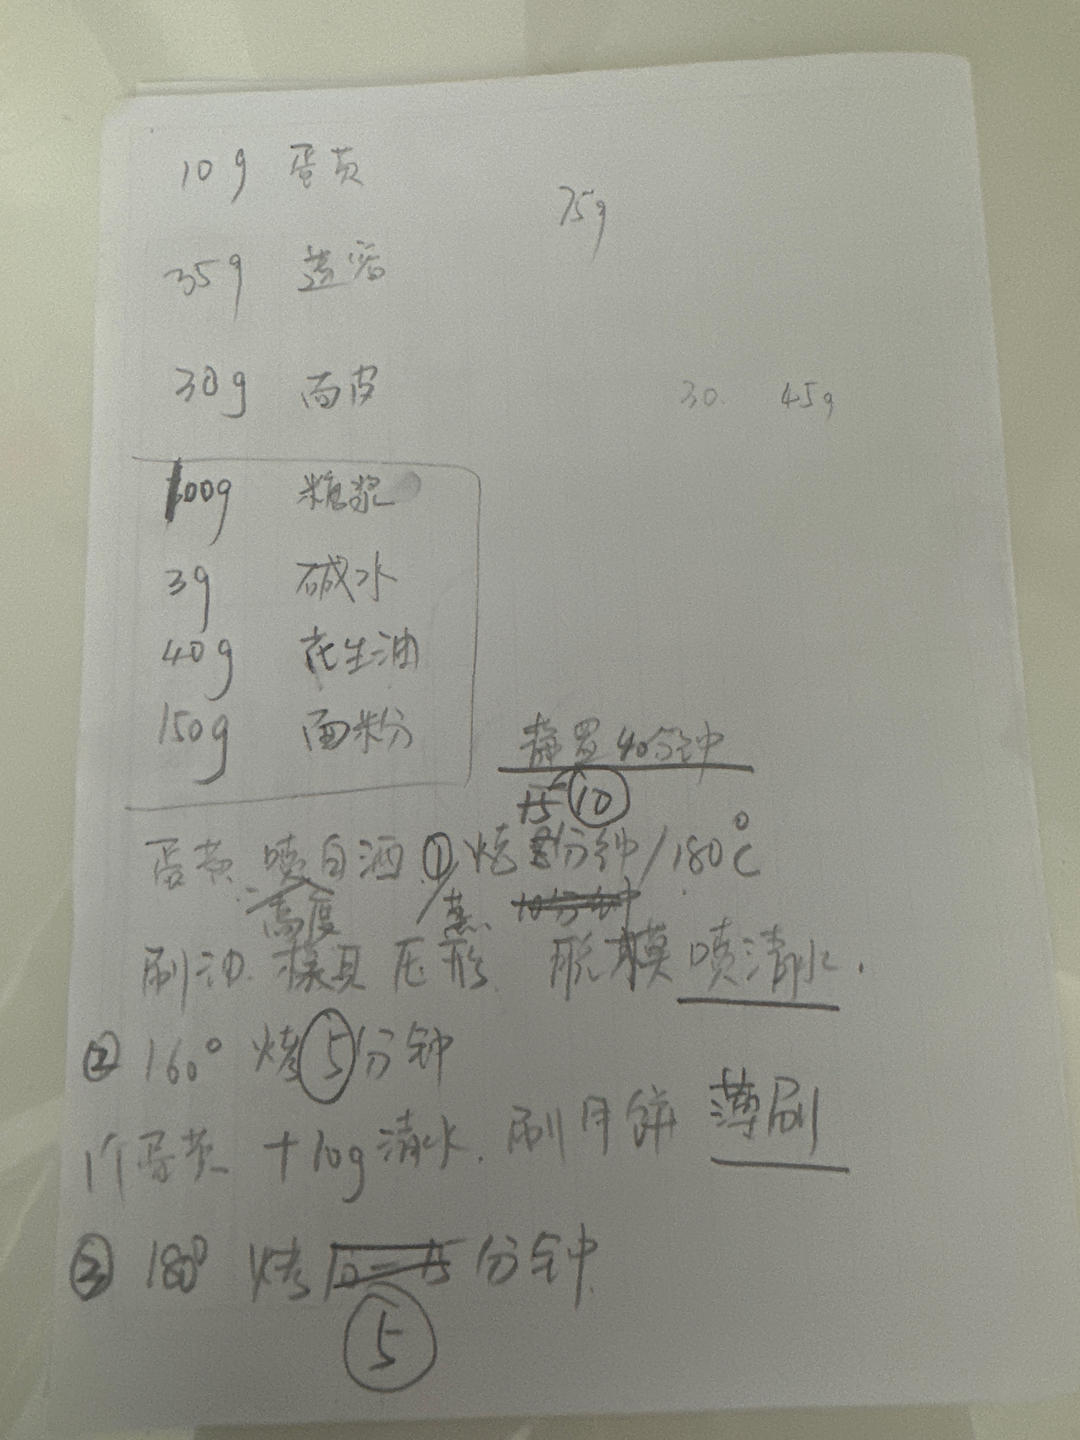 10g 蛋黄
75g
35g 莲蓉
30g 面皮
30. 45g
100g 糖浆
3g 碱水
40g 花生油
150g 面粉
静置40分钟
15 10
蛋黄 喷白酒 ①烤 8分钟/180℃
高度 蒸 10分钟
刷油 模具压形 脱模 喷清水.
② 160° 烤5分钟
1个蛋黄 + 10g清水. 刷月饼 薄刷
③ 180° 烤10-15分钟
5